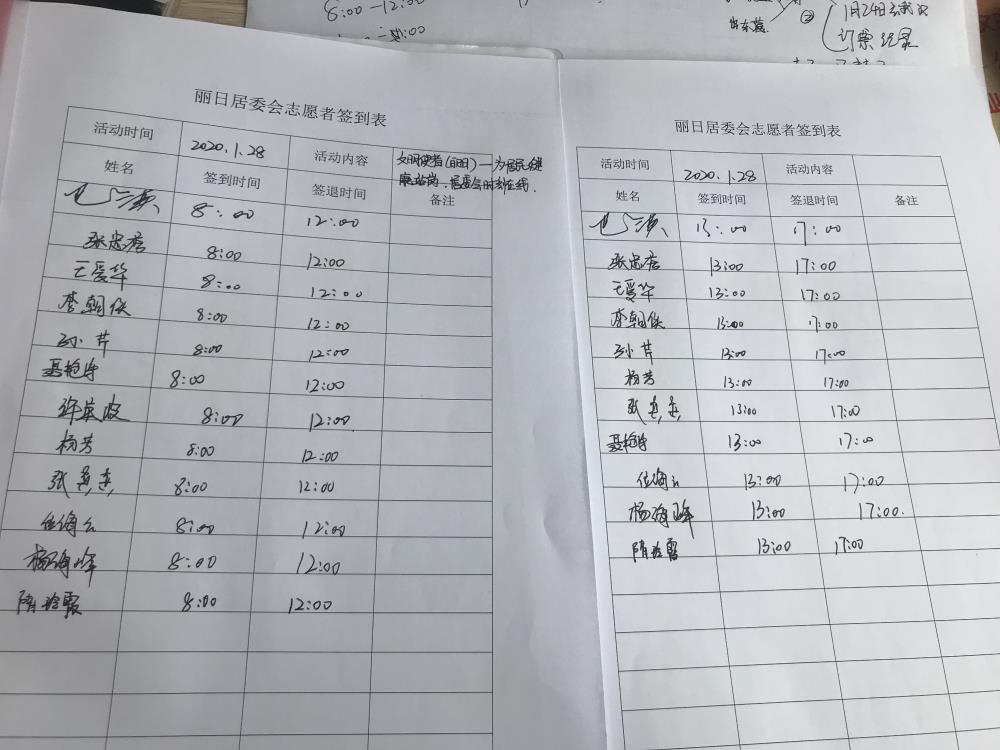 8:00-12:00
1月24日
订票纪录
丽日居委会志愿者签到表
活动时间 2020.1.28 活动内容
为居民健
康站岗,居委会时刻在线.
姓名 签到时间 签退时间 备注
8:00 12:00
张忠 8:00 12:00
王爱华 8:00 12:00
李朝 8:00 12:00
孙芹 8:00 12:00
聂艳 8:00 12:00
许英波 8:00 12:00
杨芳 8:00 12:00
张 8:00 12:00
海云 8:00 12:00
杨海峰 8:00 12:00
隋 霞 8:00 12:00
丽日居委会志愿者签到表
活动时间 2020.1.28 活动内容
姓名 签到时间 签退时间 备注
13:00 17:00
张忠 13:00 17:00
王爱华 13:00 17:00
李朝 13:00 17:00
孙芹 13:00 17:00
杨芳 13:00 17:00
张 13:00 17:00
聂艳 13:00 17:00
海云 13:00 17:00
杨海峰 13:00 17:00.
隋 霞 13:00 17:00